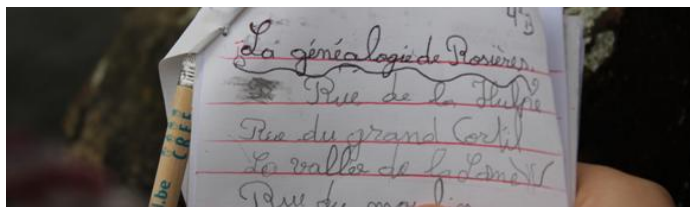 4B
La généalogie de Rosières.
Rue de la Hulpe
Rue du grand Cortil
La vallée de la Lame
Rue du moulin
CREE
CREE
l.be